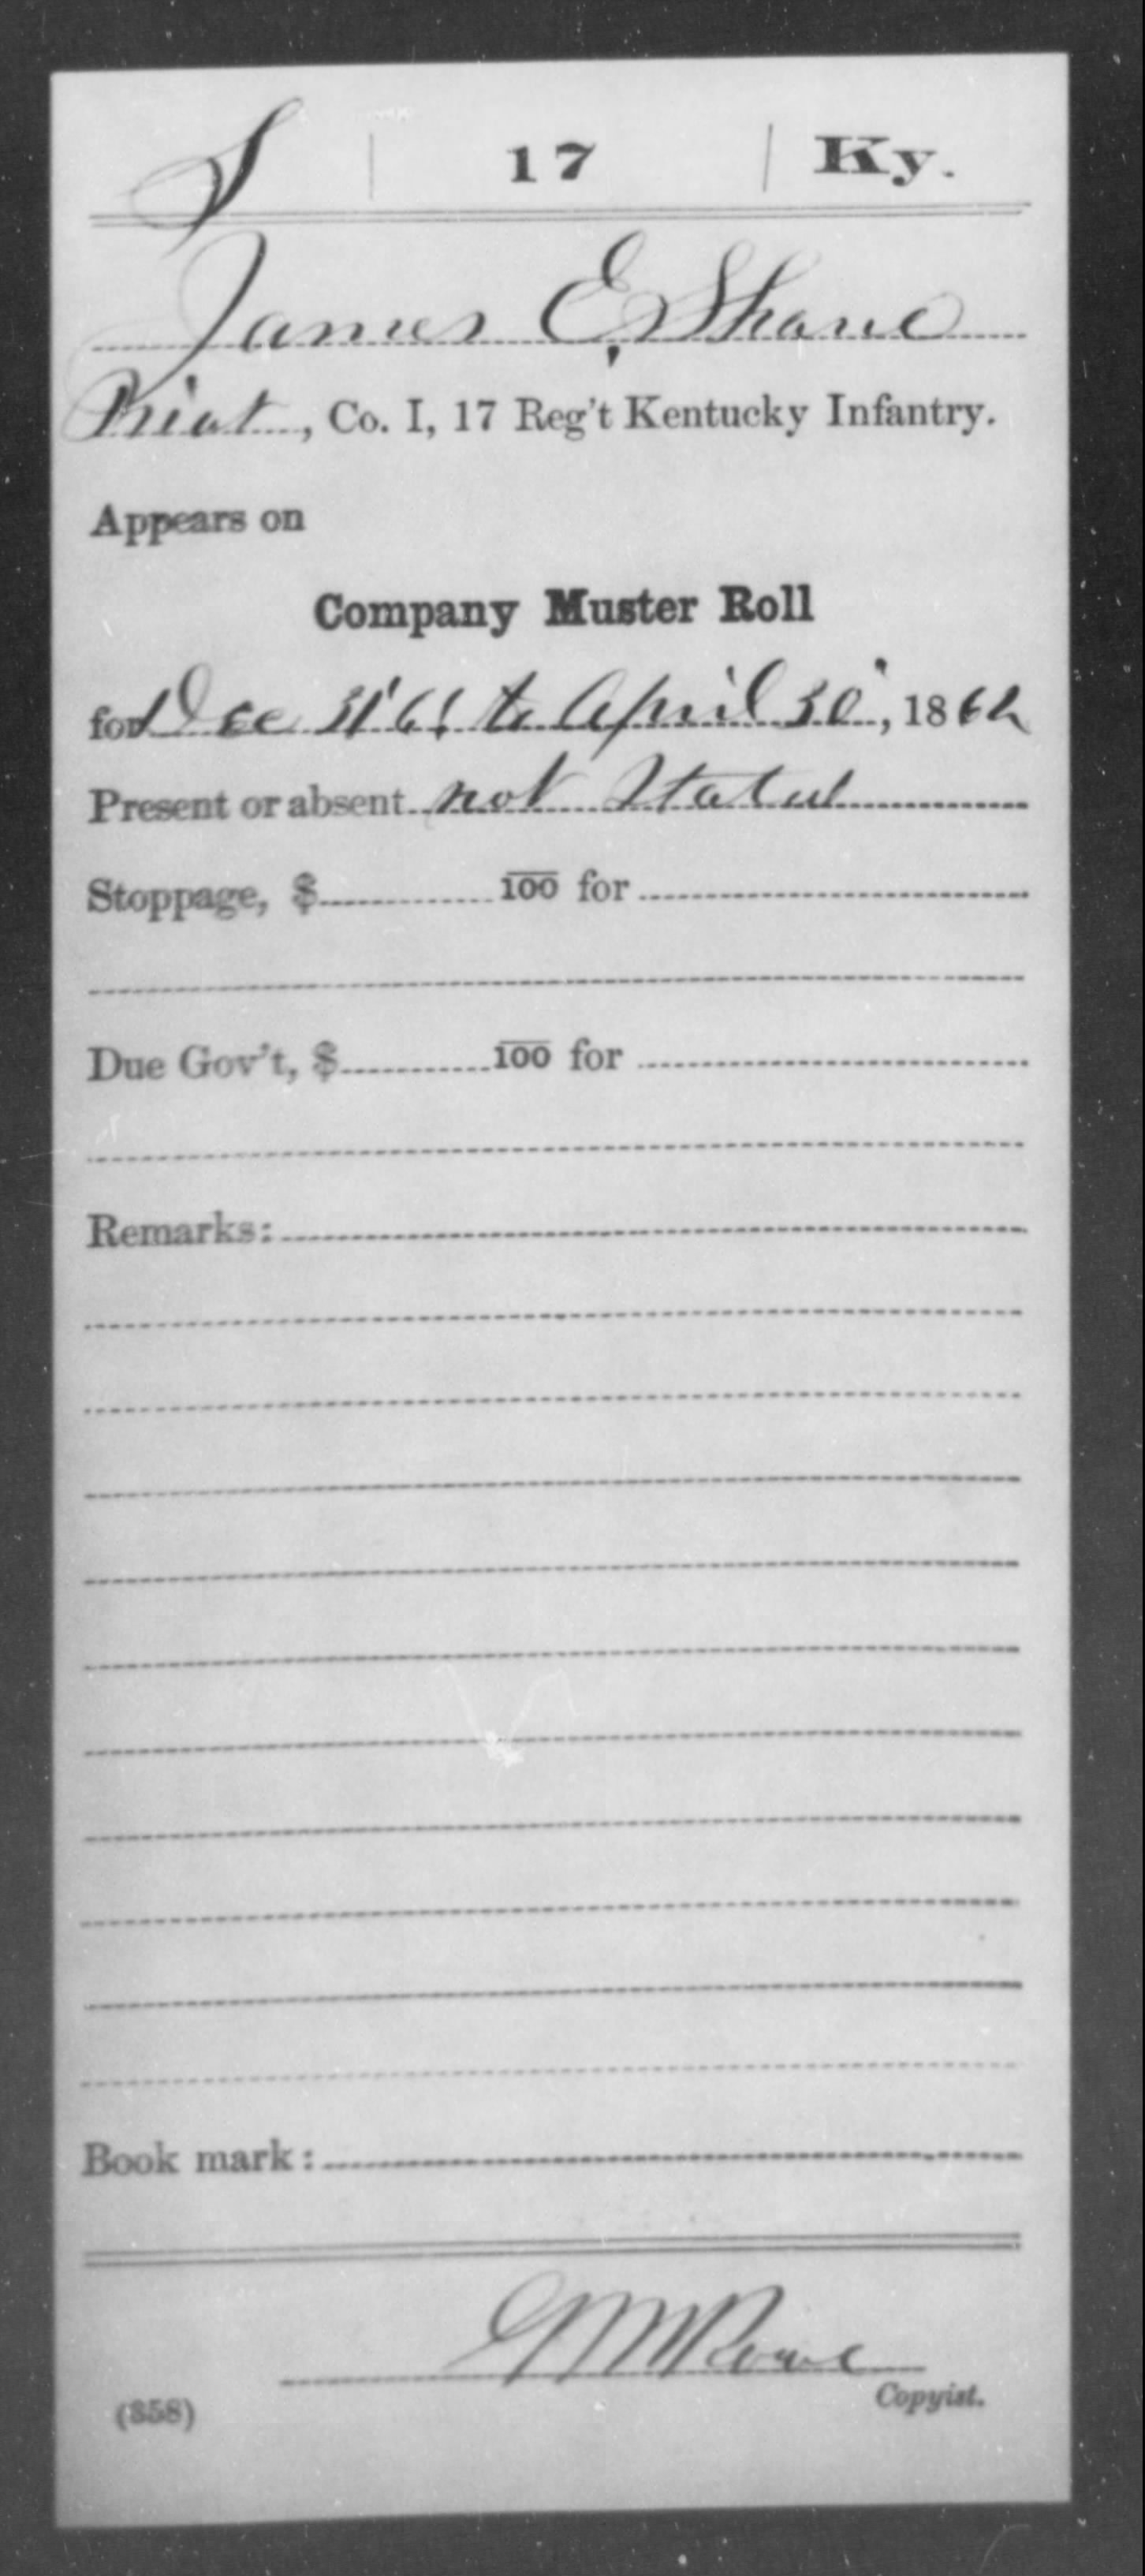 S | 17 | Ky.
James E. Shane
Privat, Co. I, 17 Reg't Kentucky Infantry.
Appears on
Company Muster Roll
for Dec 31' 61 to April 30", 1862
Present or absent not Stated
Stoppage, $ 100 for
Due Gov't, $ 100 for
Remarks:
Book mark:
(358)
Copyist.